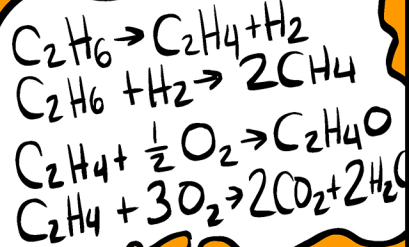 C₂H₆→C₂H₄+H₂
C₂H₆+H₂→2CH₄
C₂H₄+½O₂→C₂H₄O
C₂H₄+3O₂→2CO₂+2H₂O